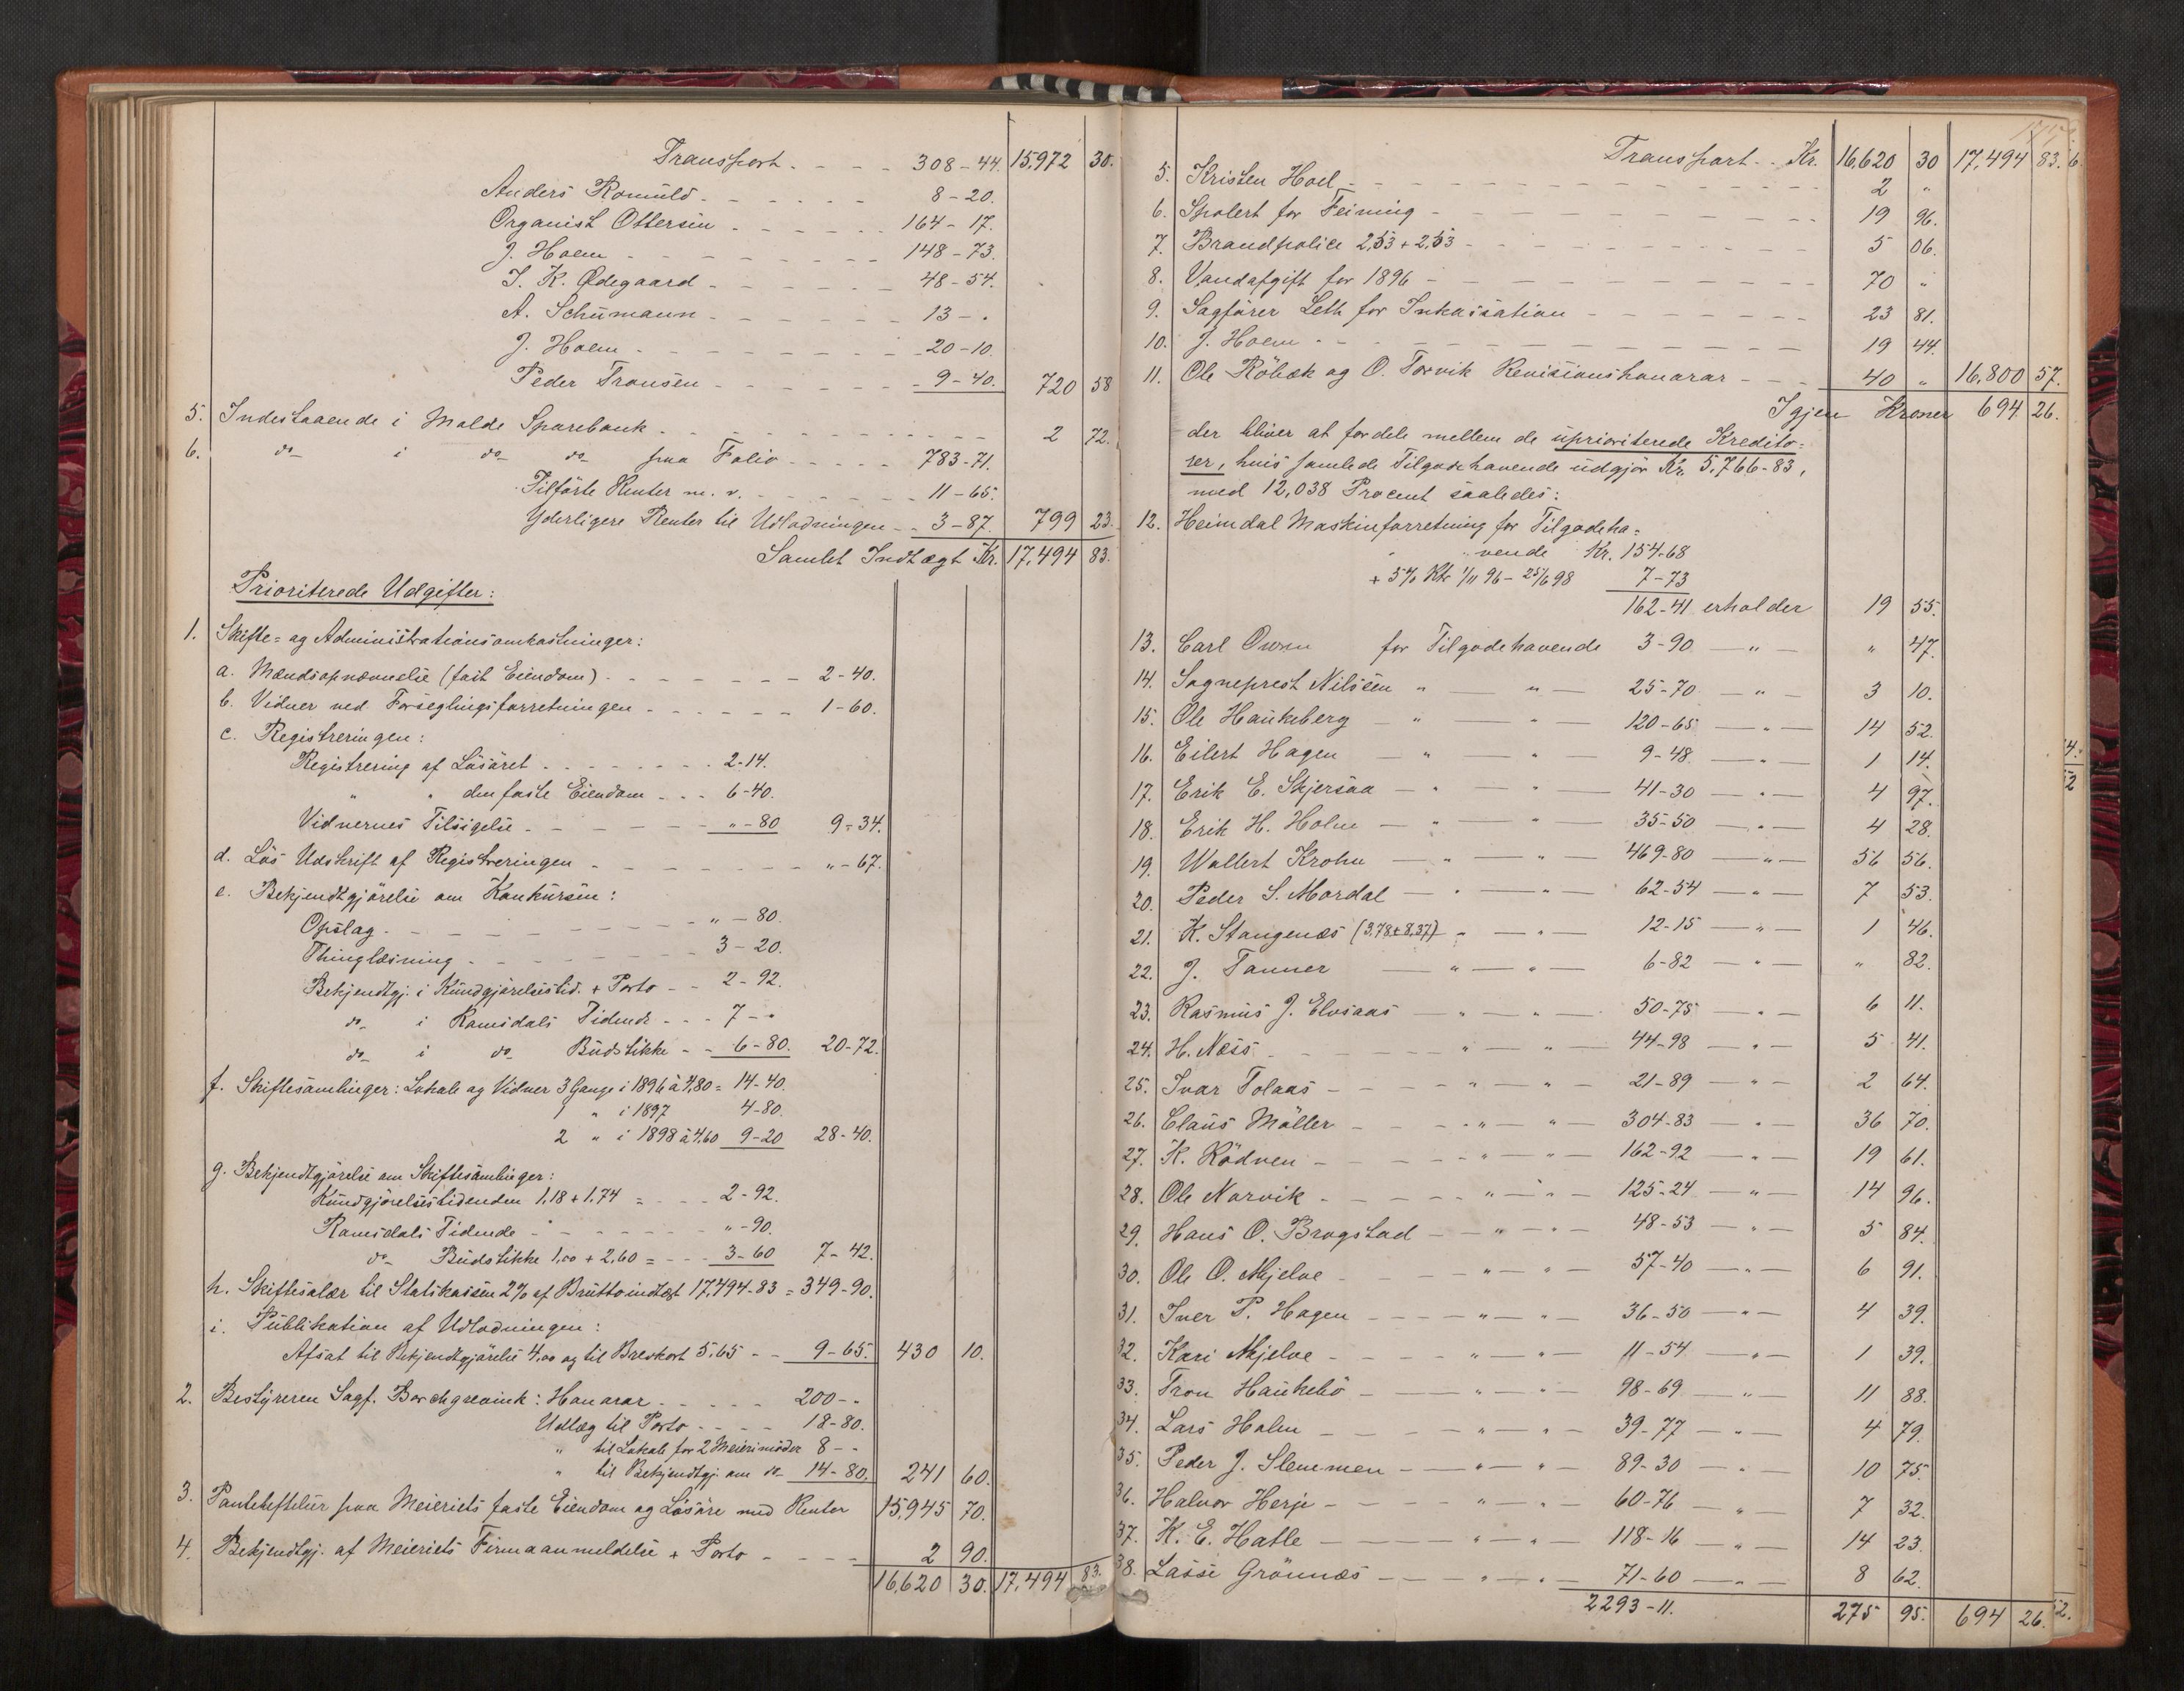 Transport - - - - 308-44. 15,972 30.
Anders Romuld - - - - - - 8-20.
Organist Ottersen - - - - - - 164-17.
J. Holm - - - - - - - - 148-73.
I. K. Ødegaard - - - - - - 48-54.
A. Schumann - - - - - - 13-"
J. Holm - - - - - - - - 20-10.
Peder Tronsen - - - - - - 9-40. 720 58
5. Indestaaende i Molde Sparebank - - - - - - - - - - 2 72.
6. do i do do paa Folio - - - - - 783-71.
Tilførte Renter m. v. - - - - - - - 11-65.
Yderligere Renter til Udlodningen - - 3-87. 799 23.
Samlet Indtægt Kr. 17,494 83.
Prioriterede Udgifter:
1. Skifte- og Administrationsomkostninger:
a. Mændsopnævnelse (fast Eiendom) - - - - - - - 2-40.
b. Vidner ved Forseglingsforretningen - - - - - - 1-60.
c. Registreringen:
Registrering af Løsøret - - - - - - - - 2-14.
" " den faste Eiendom - - - 6-40.
Vidnernes Tilsigelse - - - - - - - "-80 9-34.
d. Løs Udskrift af Registreringen - - - - - - - - "-67.
e. Bekjendtgjørelse om Konkursen:
Opslag - - - - - - - - - - - "-80.
Thinglæsning - - - - - - - - - 3-20.
Bekjendtgj. i Kundgjørelsestid. + Porto - - 2-92.
do i Romsdals Tidende - - - 7-"
do i do Budstikke - - 6-80. 20-72.
f. Skiftesamlinger: Lokale og Vidner 3 Gange i 1896 à 4,80 = 14-40.
1 " i 1897 4-80.
2 " i 1898 à 4,60 9-20 28-40.
g. Bekjendtgjørelse om Skiftesamlinger:
Kundgjørelsestidenden 1,18 + 1,74 = - - - 2-92.
Romsdals Tidende - - - - - - - "-90.
do Budstikke 1,00 + 2,60 = - - - 3-60 7-42.
h. Skiftesalær til Statskassen 2% af Bruttoindtægt 17,494-83 = 349-90.
i. Publikation af Udlodningen:
Afsat til Bekjendtgjørelse 4,00 og til Brevkort 5,65 - - 9-65. 430 10.
2. Bestyreren Sagf. Borchgrevink: Honorar - - - - - 200-"
Udlæg til Porto - - - - 18-80.
" til Lokale for 2 Meierimøder 8-"
" til Bekjendtgj. om do 14-80. 241 60.
3. Pantehæftelser paa Meieriets faste Eiendom og Løsøre med Renter 15,945 70.
4. Bekjendtgj. af Meieriets Firmaanmeldelse + Porto - - - - 2 90.
16,620 30. 17,494 83.
Transport - - Kr. 16,620 30 17,494 83.
5. Kristen Hoel - - - - - - - - - - - - - - 2 "
6. Spolert for Feining - - - - - - - - - - - - 19 96.
7. Brandpolice 2,53 + 2,53 - - - - - - - - - - - 5 06.
8. Vandafgift for 1896 - - - - - - - - - - - - 70 "
9. Sagfører Leth for Inkassation - - - - - - - 23 81.
10. J. Holm - - - - - - - - - - - - - - - 19 44.
11. Ole Röbæk og O. Torvik Revisionshonorar - - - 40 " 16,800 57.
Igjen Kroner 694 26.
der bliver at fordele mellem de uprioriterede Kredito-
rer, hvis samlede Tilgodehavende udgjør Kr. 5,766-83,
med 12,038 Procent saaledes:
12. Heimdal Maskinforretning for Tilgodeha-
vende Kr. 154-68
+ 5% Rtr 1/11 96 - 25/6 98 7-73
162-41 erholder 19 55.
13. Carl Owren for Tilgodehavende 3-90 — " — " 47.
14. Sogneprest Nilssen " — " — 25-70 — " — 3 10.
15. Ole Haukeberg — " — " — 120-65 — " — 14 52.
16. Eilert Hagen — " — " — 9-48 — " — 1 14.
17. Erik E. Skjersaa — " — " — 41-30 — " — 4 97.
18. Erik H. Holm — " — " — 35-50 — " — 4 28.
19. Wollert Krohn — " — " — 469-80 — " — 56 56.
20. Peder S. Mordal — " — " — 62-54 — " — 7 53.
21. K. Stangenæs (3,78 + 8,37) - — " — 12-15 — " — 1 46.
22. J. Tanner — " — " — 6-82 — " — " 82.
23. Rasmus J. Elvsaas — " — " — 50-75 — " — 6 11.
24. H. Næss - - - - - " — " — 44-98 — " — 5 41.
25. Ivar Tolaas - - - - " — " — 21-89 — " — 2 64.
26. Claus Møller - - - - " — " — 304-83 — " — 36 70.
27. K. Rödven - - - - - " — " — 162-92 — " — 19 61.
28. Ole Norvik - - - - - " — " — 125-24 — " — 14 96.
29. Hans O. Brogstad - — " — " — 48-53 — " — 5 84.
30. Ole O. Mjelve - - - - " — " — 57-40 — " — 6 91.
31. Iver P. Hagen - - - - " — " — 36-50 — " — 4 39.
32. Kari Mjelve - - - - - " — " — 11-54 — " — 1 39.
33. Tron Haukebö - - - - " — " — 98-69 — " — 11 88.
34. Lars Holm - - - - - " — " — 39-77 — " — 4 79.
35. Peder J. Slemmen - - - " — " — 89-30 — " — 10 75.
36. Halvor Herje - - - - " — " — 60-76 — " — 7 32.
37. K. E. Hatle - - - - - " — " — 118-16 — " — 14 23.
38. Lasse Grönnæs - - - - " — " — 71-60 — " — 8 62.
2293-11. 275 95. 694 26.